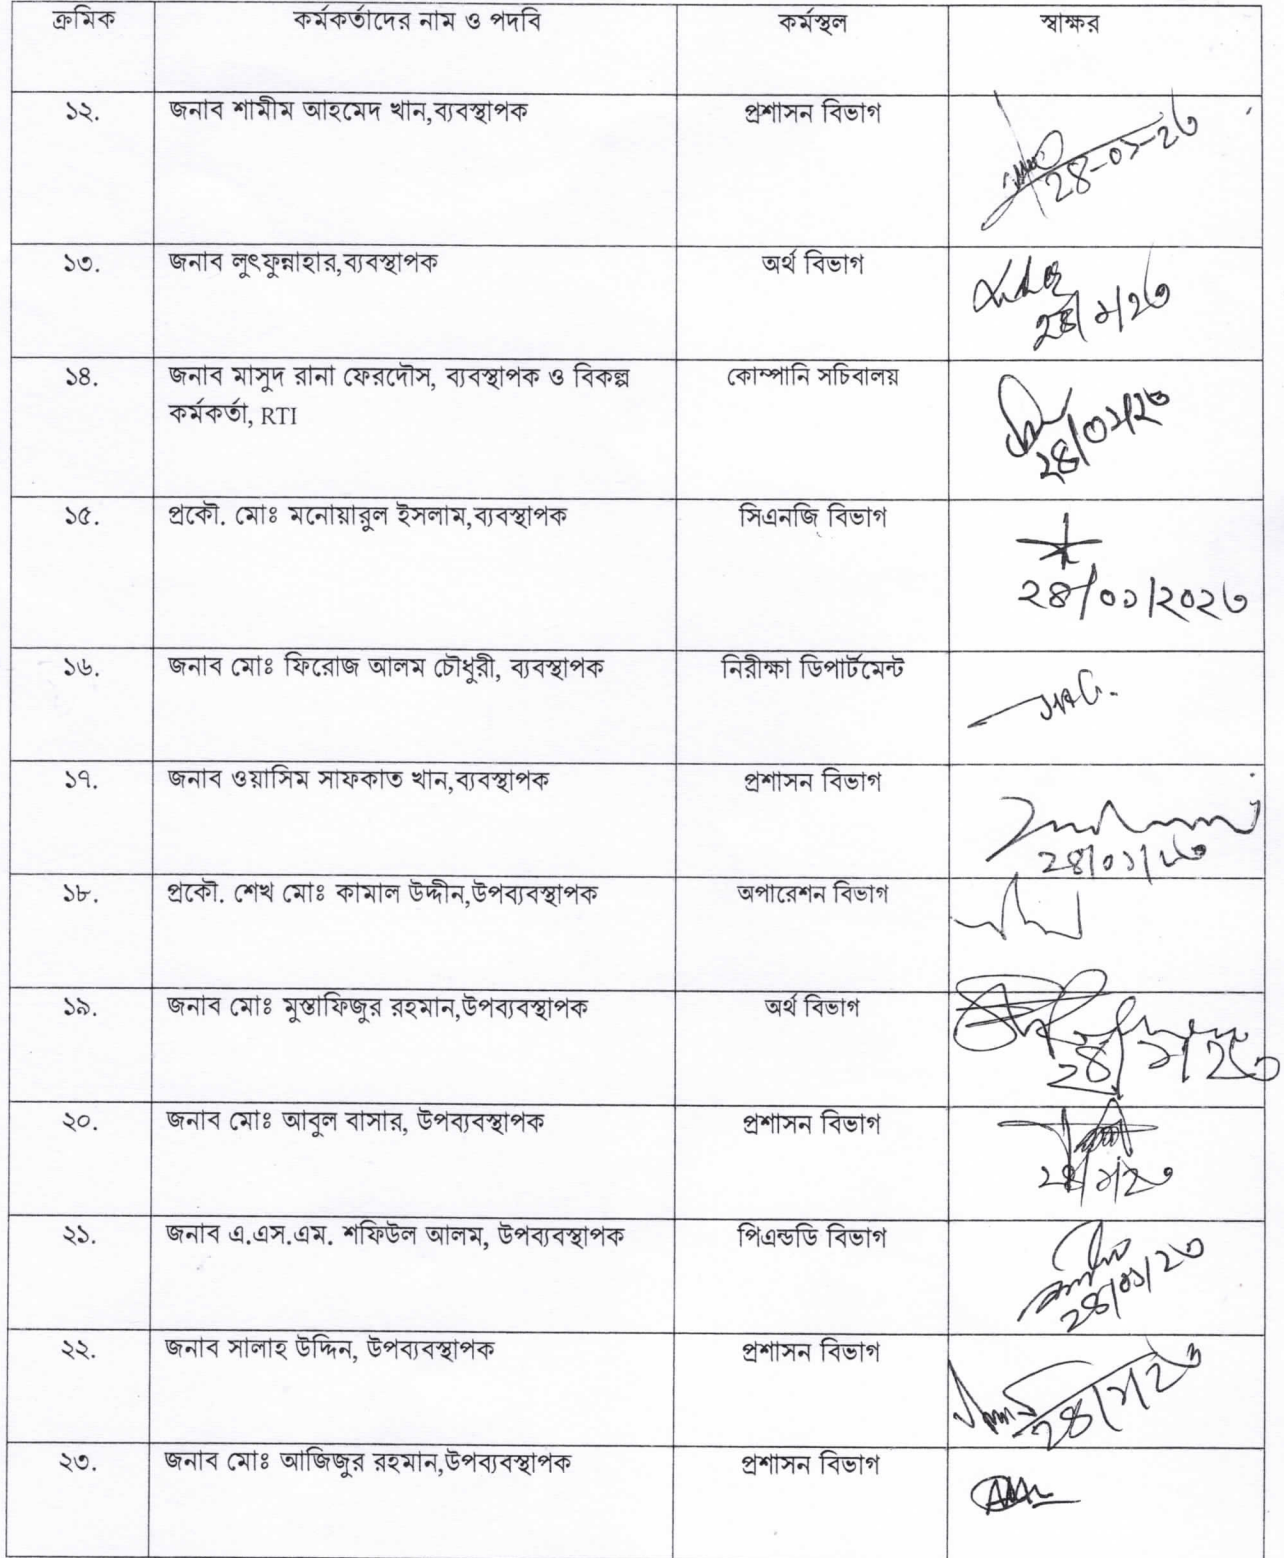 ক্রমিক কর্মকর্তাদের নাম ও পদবি কর্মস্থল স্বাক্ষর
১২. জনাব শামীম আহমেদ খান,ব্যবস্থাপক প্রশাসন বিভাগ
২৪-০১-২৩
১৩. জনাব লুৎফুন্নাহার,ব্যবস্থাপক অর্থ বিভাগ
২৪/১/২৩
১৪. জনাব মাসুদ রানা ফেরদৌস, ব্যবস্থাপক ও বিকল্প কোম্পানি সচিবালয়
কর্মকর্তা, RTI
২৪/০১/২৩
১৫. প্রকৌ. মোঃ মনোয়ারুল ইসলাম,ব্যবস্থাপক সিএনজি বিভাগ
২৪/০১/২০২৩
১৬. জনাব মোঃ ফিরোজ আলম চৌধুরী, ব্যবস্থাপক নিরীক্ষা ডিপার্টমেন্ট
১৭. জনাব ওয়াসিম সাফকাত খান,ব্যবস্থাপক প্রশাসন বিভাগ
২৪/০১/২৩
১৮. প্রকৌ. শেখ মোঃ কামাল উদ্দীন,উপব্যবস্থাপক অপারেশন বিভাগ
১৯. জনাব মোঃ মুস্তাফিজুর রহমান,উপব্যবস্থাপক অর্থ বিভাগ
২৪/১/২৩
২০. জনাব মোঃ আবুল বাসার, উপব্যবস্থাপক প্রশাসন বিভাগ
২৪/১/২৩
২১. জনাব এ.এস.এম. শফিউল আলম, উপব্যবস্থাপক পিএন্ডডি বিভাগ
২৪/০১/২৩
২২. জনাব সালাহ উদ্দিন, উপব্যবস্থাপক প্রশাসন বিভাগ
২৪/১/২৩
২৩. জনাব মোঃ আজিজুর রহমান,উপব্যবস্থাপক প্রশাসন বিভাগ